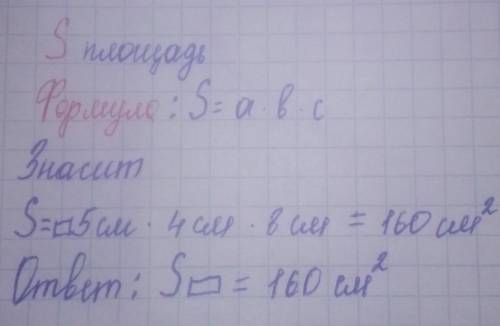 S площадь
Формула: S = a · b · c
Значит
S=▭5см · 4см · 8см = 160 см²
Ответ: S▭ = 160 см²